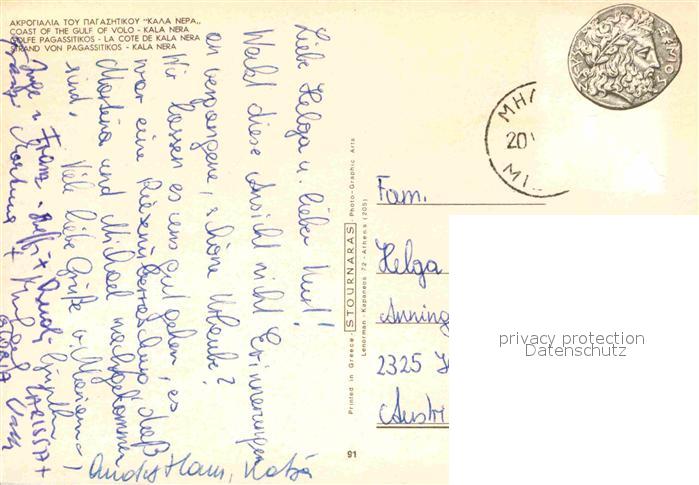 ΑΚΡΟΓΙΑΛΙΑ ΤΟΥ ΠΑΓΑΣΗΤΙΚΟΥ "ΚΑΛΑ ΝΕΡΑ,,
COAST OF THE GULF OF VOLO - KALA NERA
GOLFE PAGASSITIKOS - LA COTE DE KALA NERA
STRAND VON PAGASSITIKOS - KALA NERA
Liebe Helga u. lieber Kurt!
Weckt diese Ansicht nicht Erinnerungen
an vergangene, schöne Urlaube?
Wir lassen es uns gut gehen, es
war eine Riesenüberraschung, daß
Martina und Michael nachgekommen
sind. Viel liebe Grüße v. Marianne,
Inge u. Franz
Martina +
LARISSA +
Andy Hans, Katja
Printed in Greece - STOURNARAS - Photo-Graphic Arts
Lenorman - Kapaneos 72 - Athens (205)
91
ΜΗΛ
20
ΜΙ
Fam.
Helga
Anning
2325
Austri
privacy protection
Datenschutz